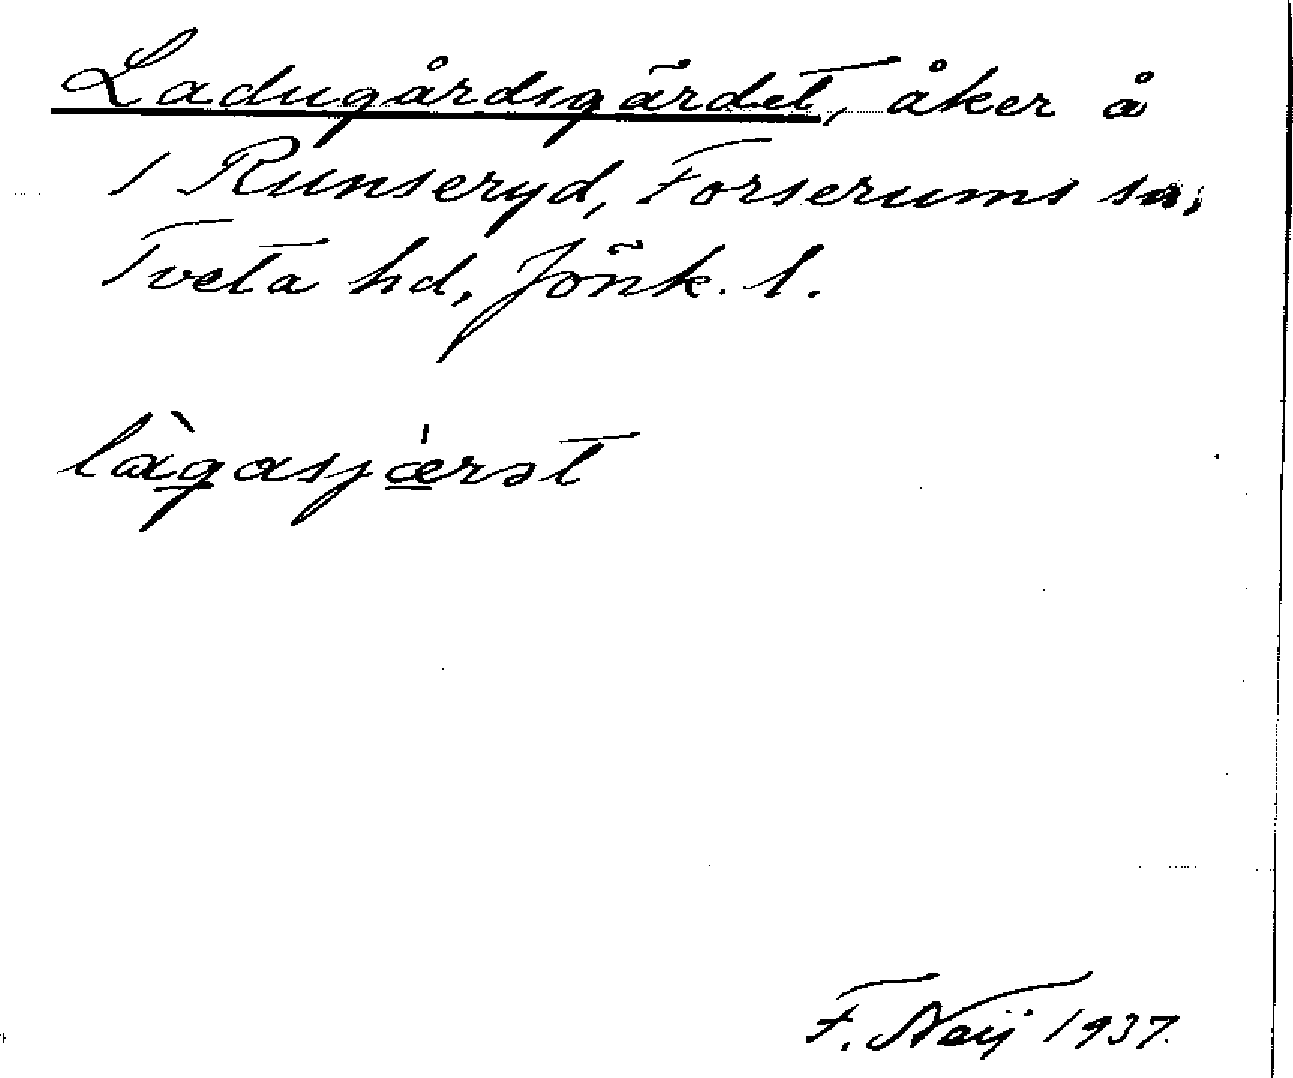 Ladugårdsgärdet, åker å
1 Runseryd, Forserums sn,
Tveta hd, Jönk. l.
là̱g̱asjǽ̱rət
F. Neij 1937.